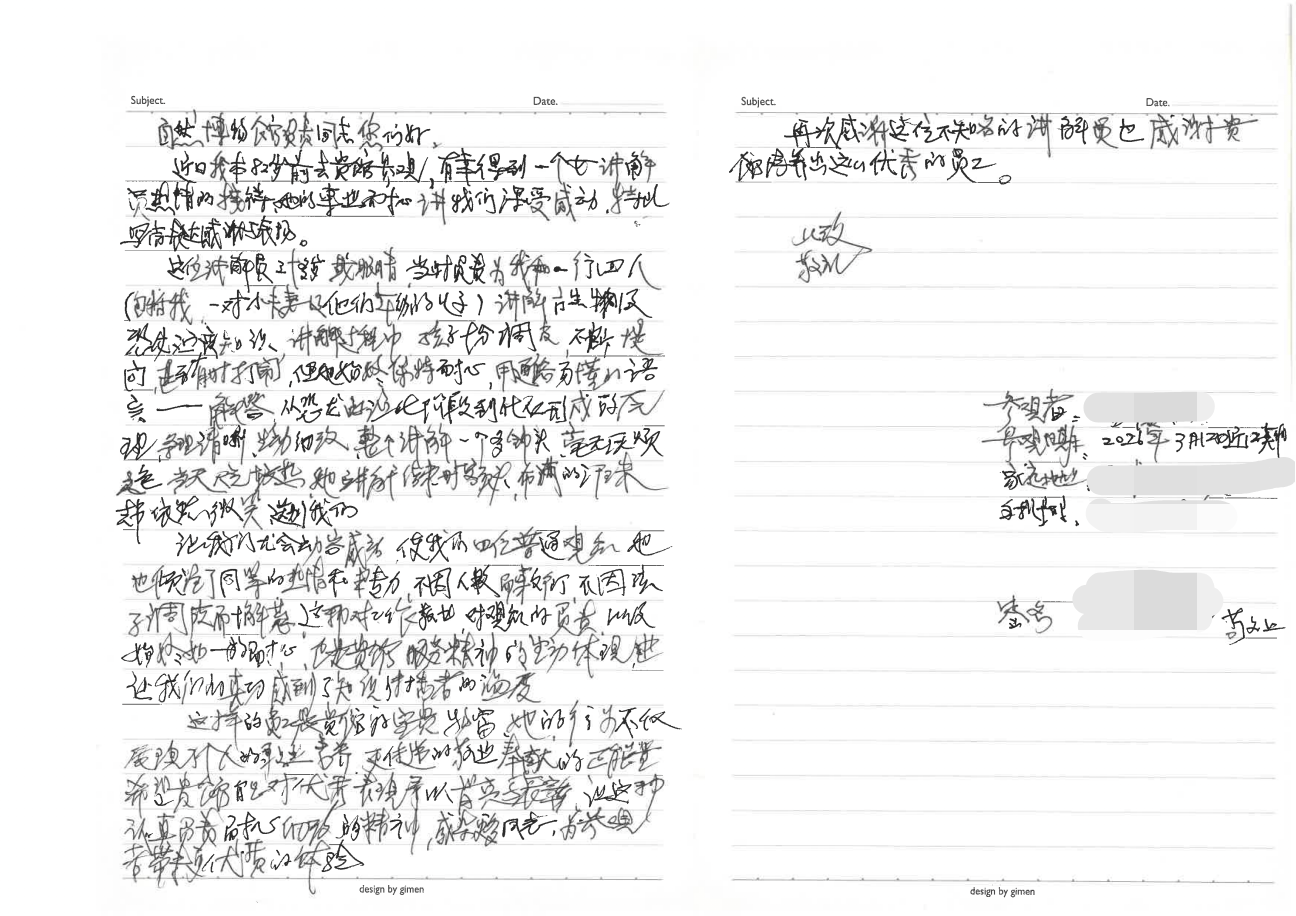 Subject.
Date.
自然博物馆负责同志您们好。
近日我本32岁前去贵馆参观，有幸得到一个女讲解
员热情的接待，她的专业耐心讲我们深受感动，特此
写信表达感谢与表扬。
这位讲解员 戴眼睛，当时负责为我和一行四人
（包括我，一对小夫妻以他们年幼的儿子）讲解古生物及
恐龙进演知识，讲解过程中 孩子十分调皮，不断提
问，甚至有时打闹，但她始终保持耐心，用通俗易懂的语
言一一解答 从恐龙的演化阶段到化石形成的原
理，条理清晰，生动细致，整个讲解一个多钟头，毫无厌烦
之色 当天天气较热，她讲解结束时额头布满的汗珠
却依然微笑送别我们
让我们尤会动容感动 使我们四位普通观众 她
也倾注了同等的热情和专力，不因人数 不因孩
子调皮而懈怠，这种对工作敬业，对观众的负责 以及
始终如一的耐心，也是贵馆服务精神的生动体现，也
让我们真切感到了知识传播者的温度
这样的员工是贵馆的宝贵财富，她的行为不仅
展现了个人的职业素养，更传递的敬业奉献的正能量
希望贵馆能对优秀表现予以首亮与表彰，让这种
认真负责耐心细致的精神，感染 同志，为参观
者带来更优质的体验
design by gimen
Subject.
Date.
再次感谢这位不知名的讲解员也感谢贵
馆培养出这么优秀的员工。
此致
敬礼
参观者：
参观日期： 2026年3月120近12
家庭地址：
手机号码：
敬上
design by gimen